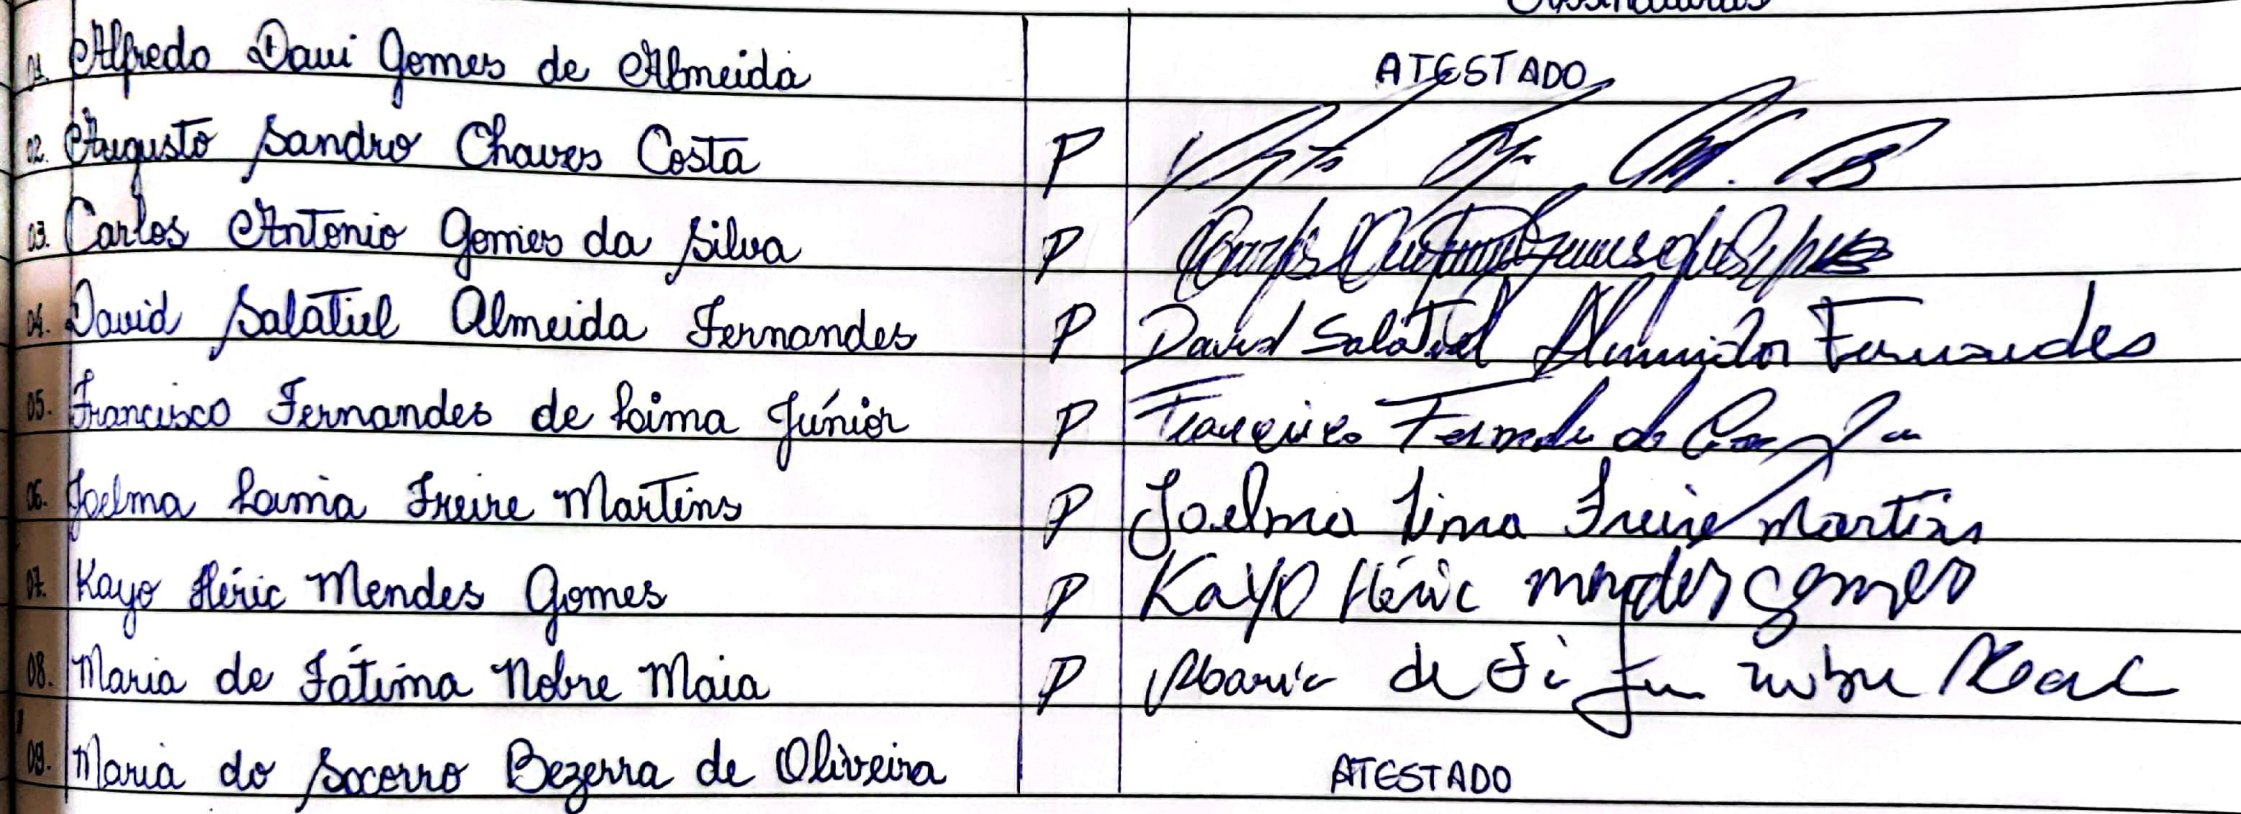 Assinaturas
01. Alfredo Davi Gomes de Almeida ATESTADO
02. Augusto Sandro Chaves Costa P
03. Carlos Antonio Gomes da Silva P
04. David Salatiel Almeida Fernandes P David Salatiel Almeida Fernandes
05. Francisco Fernandes de Lima Júnior P Francisco
06. Joelma Lima Freire Martins P Joelma Lima Freire Martins
07. Kayo Héric Mendes Gomes P Kayo Héric Mendes Gomes
08. Maria de Fátima Nobre Maia P Maria de
09. Maria do Socorro Bezerra de Oliveira ATESTADO